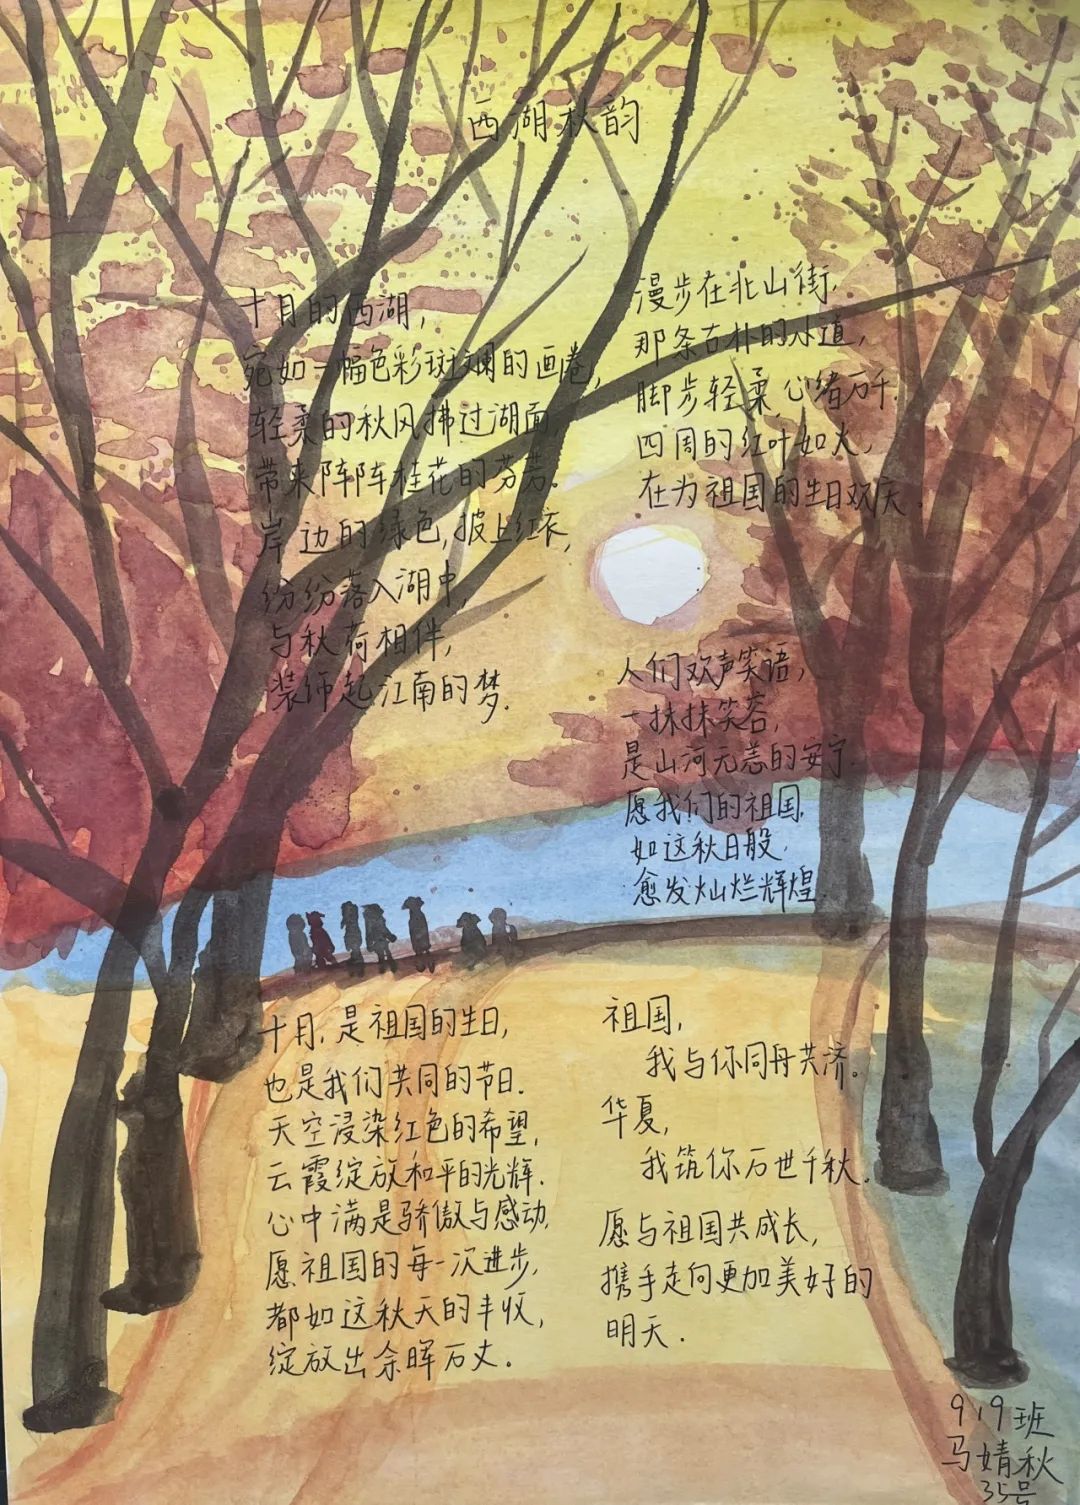 西湖秋韵
十月的西湖,
宛如一幅色彩斑斓的画卷,
轻柔的秋风拂过湖面,
带来阵阵桂花的芬芳。
岸边的绿色,披上红衣,
纷纷落入湖中,
与秋荷相伴,
装饰起江南的梦.
漫步在北山街,
那条古朴的小道,
脚步轻柔,心绪万千.
四周的红叶如火,
在为祖国的生日欢庆.
人们欢声笑语,
一抹抹笑容,
是山河无恙的安宁.
愿我们的祖国,
如这秋日般,
愈发灿烂辉煌
十月,是祖国的生日,
也是我们共同的节日.
天空浸染红色的希望,
云霞绽放和平的光辉.
心中满是骄傲与感动,
愿祖国的每一次进步,
都如这秋天的丰收,
绽放出余晖万丈.
祖国,
我与你同舟共济。
华夏,
我筑你万世千秋.
愿与祖国共成长,
携手走向更加美好的
明天.
919班
马婧秋
35号